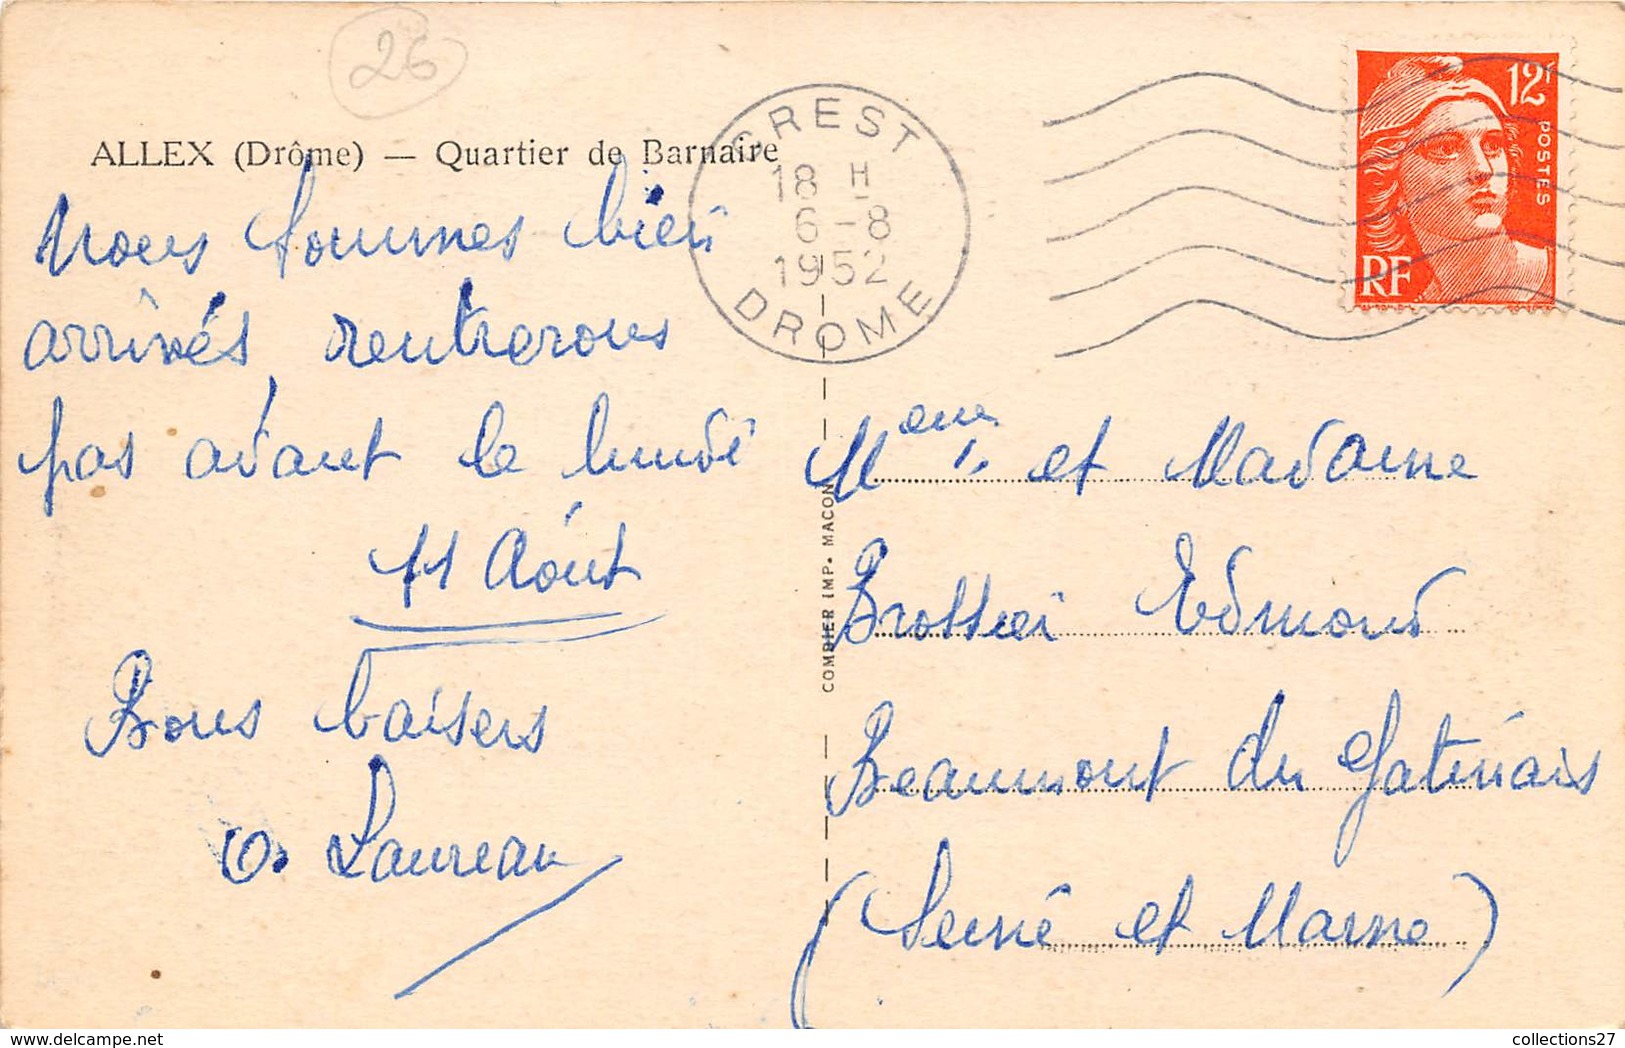 26
ALLEX (Drôme) — Quartier de Barnaire
CREST
18 H
6-8
1952
DROME
12f
POSTES
RF
Nous sommes bien
arrivés, rentrerons
pas avant le lundi
11 Août
Bons baisers
O. Laureau
COMBIER IMP. MACON
Meur et Madame
Brossier Edmond
Beaumont du Gatinais
(Seine et Marne)
collections27